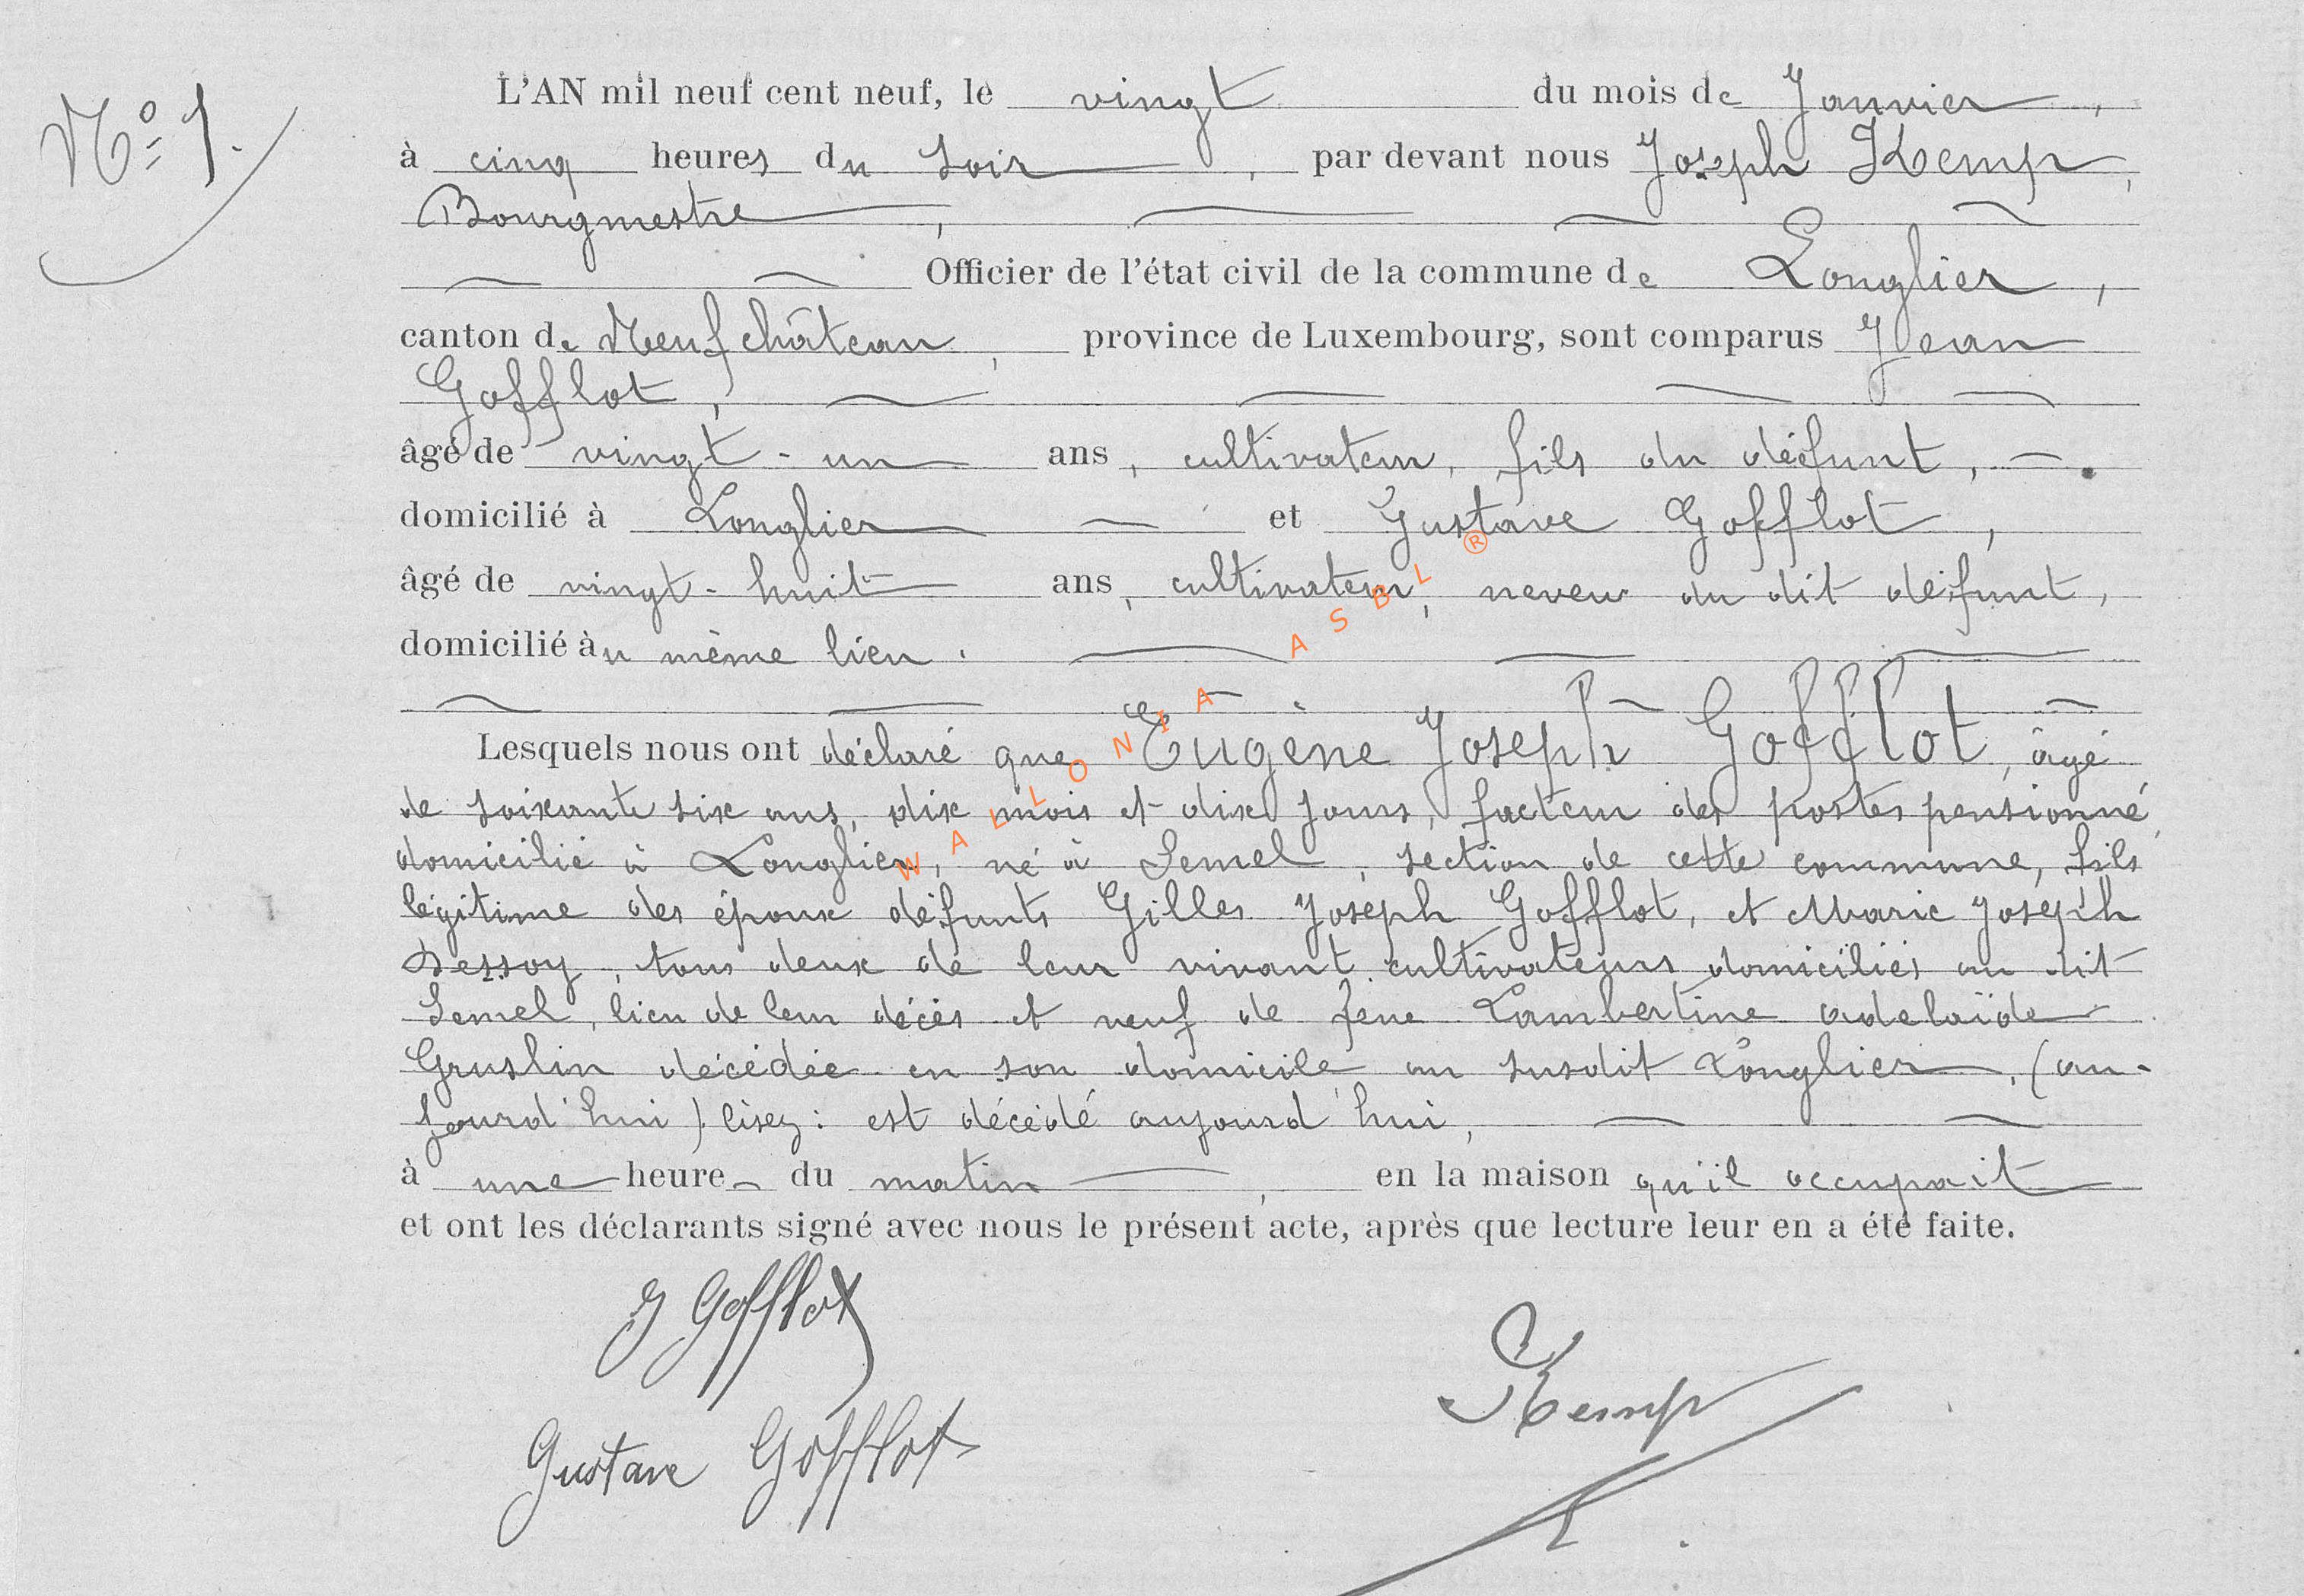 N° 1.
L'AN mil neuf cent neuf, le vingt du mois de Janvier,
à cinq heures du soir, par devant nous Joseph Kemp,
Bourgmestre,
Officier de l'état civil de la commune de Longlier,
canton de Neufchâteau, province de Luxembourg, sont comparus Jean
Gofflot,
âgé de vingt-un ans, cultivateur, fils du défunt,
domicilié à Longlier et Gustave Gofflot,
âgé de vingt-huit ans, cultivateur, neveu du dit défunt,
domicilié au même lieu.
Lesquels nous ont déclaré que Eugène Joseph Gofflot, âgé
de soixante six ans, dix mois et dix jours, facteur des postes pensionné,
domicilié à Longlier, né à Semel, section de cette commune, fils
légitime des époux défunts Gilles Joseph Gofflot, et Marie Joseph
Dessoy, tous deux de leur vivant cultivateurs domiciliés au dit
Semel, lieu de leur décès et veuf de feue Lambertine Adelaïde
Gruslin décédée en son domicile au susdit Longlier, (au-
jourd'hui) lisez : est décédé aujourd'hui,
à une heure du matin, en la maison qu'il occupait
et ont les déclarants signé avec nous le présent acte, après que lecture leur en a été faite.
J Gofflot
Kemp
Gustave Gofflot
WALLONIA ASBL ®